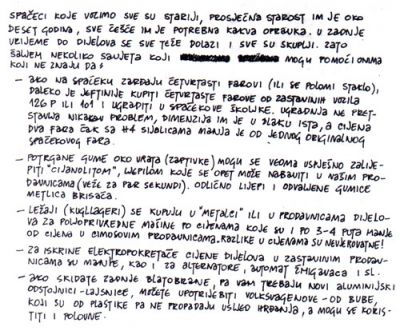 SPAČECI KOJE VOZIMO SVE SU STARIJI, PROSJEČNA STAROST IM JE OKO
DESET GODINA, SVE ČEŠĆE IM JE POTREBNA KAKVA OPRAVKA. U ZADNJE
VRIJEME DO DIJELOVA SE SVE TEŽE DOLAZI I SVI SU SKUPLJI. ZATO
ŠALJEM NEKOLIKO SAVJETA KOJI MOGU POMOĆI ONIMA
KOJI NE ZNAJU DA:
- AKO NA SPAČEKU ZARĐAJU ČETVRTASTI FAROVI (ILI SE POLOMI STAKLO),
DALEKO JE JEFTINIJE KUPITI ČETVRTASTE FAROVE OD ZASTAVINIH VOZILA
126 P ILI 101 I UGRADITI U SPAČEKOVE ŠKOLJKE. UGRADNJA NE PRET-
STAVLJA NIKAKAV PROBLEM, DIMENZIJA IM JE U DLAKU ISTA, A CIJENA
DVA FARA ČAK SA H4 SIJALICAMA MANJA JE OD JEDNOG ORIGINALNOG
SPAČEKOVOG FARA.
- POTRGANE GUME OKO VRATA (ZAPTIVKE) MOGU SE VEOMA USPJEŠNO ZALIJE-
PITI "CIJANOLITOM", LJEPILOM KOJE SE OPET MOŽE NABAVITI U NAŠIM PRO-
DAVNICAMA (VEŽE ZA PAR SEKUNDI). ODLIČNO LIJEPI I ODVALJENE GUMICE
METLICA BRISAČA.
- LEŽAJI (KUGLLAGERI) SE KUPUJU U "METALCI" ILI U PRODAVNICAMA DIJELO-
VA ZA POLJOPRIVREDNE MAŠINE PO CIJENAMA KOJE SU I PO 3-4 PUTA MANJE
OD CIJENA U CIMOSOVIM PRODAVNICAMA. RAZLIKE U CIJENAMA SU NEVJEROVATNE!
- ZA ISKRINE ELEKTROPOKRETAČE CIJENE DIJELOVA U ZASTAVINIM PRODAV-
NICAMA SU MANJE, KAO I ZA ALTERNATORE, AUTOMAT ŽMIGAVACA I SL.
- AKO SKIDATE ZADNJE BLATOBRANE, PA VAM TREBAJU NOVI ALUMINIJSKI
ODSTOJNICI-LAJSNICE, MOŽETE UPOTRIJEBITI VOLKSVAGENOVE - OD BUBE,
KOJI SU OD PLASTIKE PA NE PROPADAJU USLJED HRĐANJA, A MOGU SE KORIS-
TITI I POLOVNE.